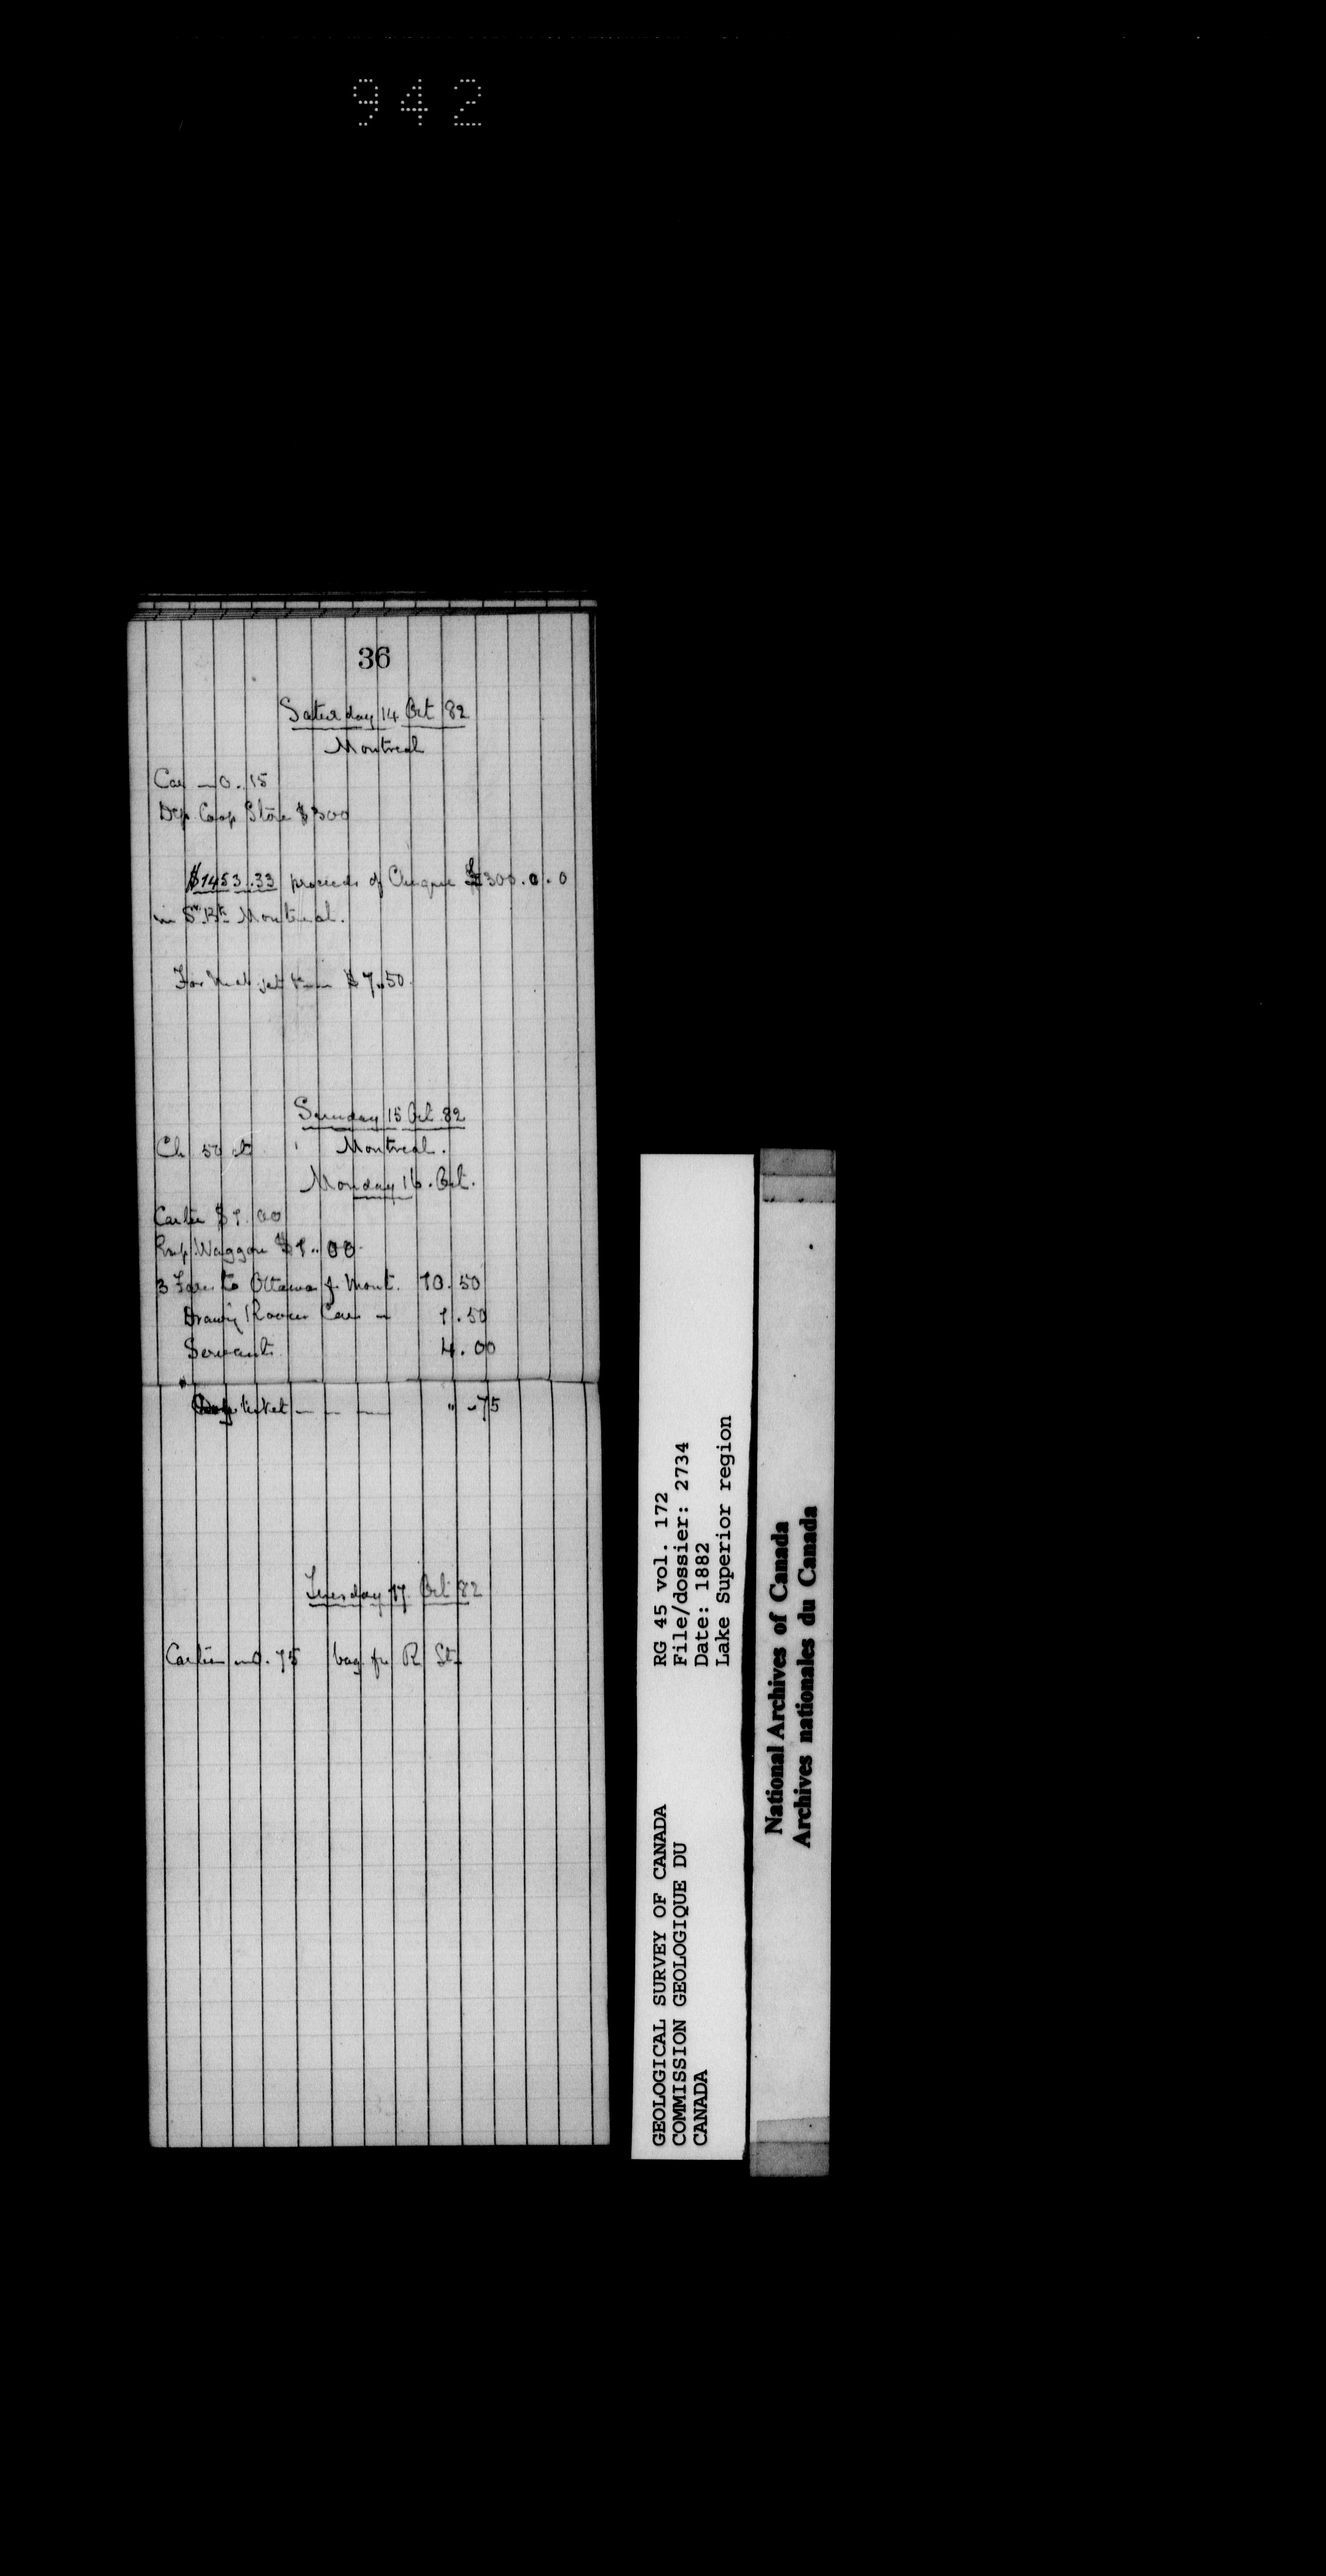 942
36
Saturday 14 Oct 82
Montreal
Car — 0.15
Dep. Coop Store $300
$1453.33 proceeds of Cheque £300.0.0
in Montreal.
For $7.50
Sunday 15 Oct 82
Ch 50 ct Montreal.
Monday 16. Oct.
Carter $1.00
Waggon $1.00
3 Fares to Ottawa f. Mont. 10.50
Drawing Room Car — 1.50
Servant 4.00
ticket — — — " - 75
Tuesday 17 Oct 82
Carter — 0.75 bag. fr R St.
RG 45 vol. 172
File/dossier: 2734
Date: 1882
Lake Superior region
GEOLOGICAL SURVEY OF CANADA
COMMISSION GEOLOGIQUE DU
CANADA
National Archives of Canada
Archives nationales du Canada